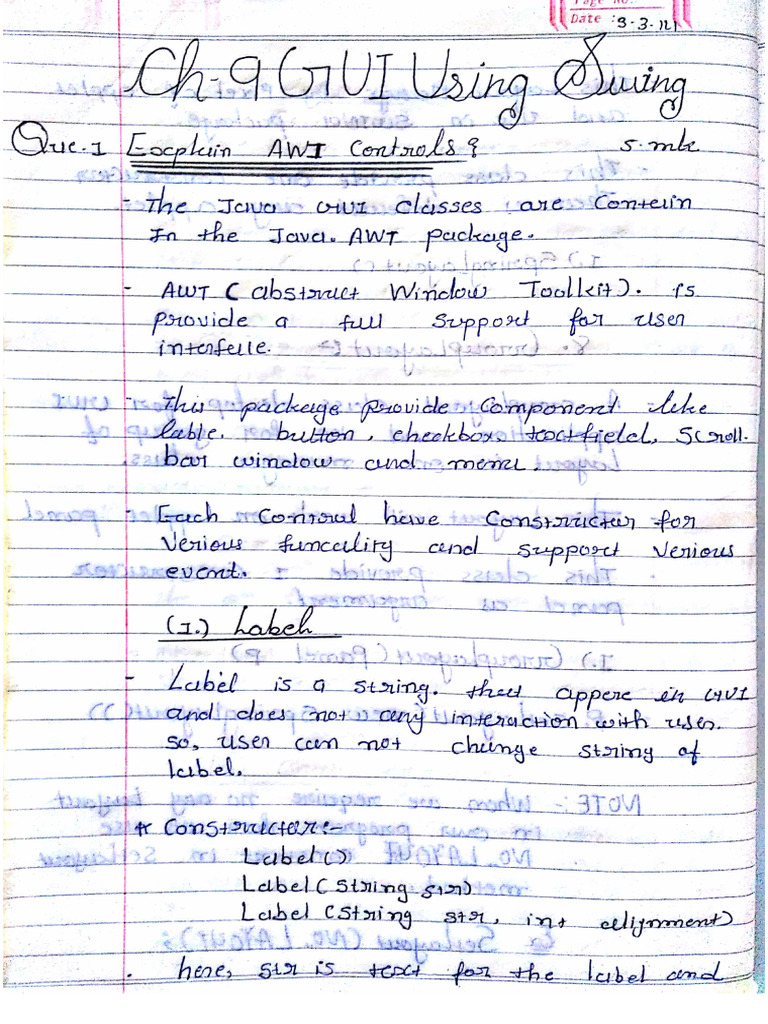 Page No.
Date : 3-3-121
Ch-9 GUI Using Swing
Que.1 Explain AWT Controls? 5.mk
- The Java GUI classes are Contein
In the Java. AWT package.
- AWT ( abstruct Window Toolkit). is
provide a full support for user
interfele.
- This package provide component like
lable. button, checkbox textfield, scroll-
bar window and menu.
- Each Control have Constructur for
verious funcality and support verious
event.
(I.) Label
- Label is a string. that appere in GUI
and does not any interaction with user.
so, user can not chunge string of
label.
* Constructor:-
Label()
Label(string str)
Label (string str, int allignment)
. here, str is text for the label and